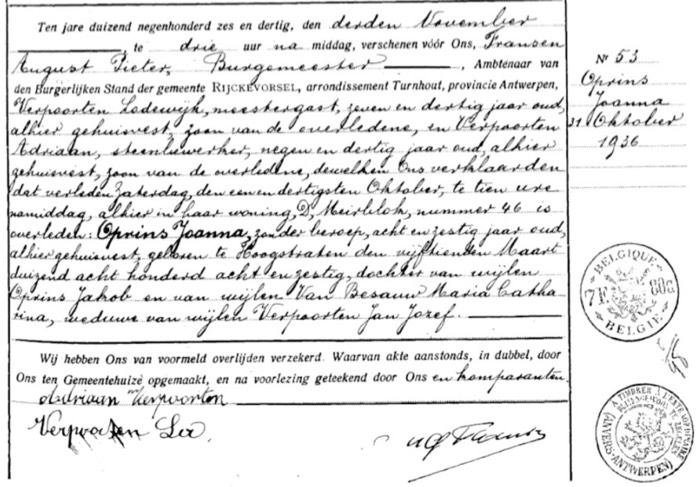 Ten jare duizend negenhonderd zes en dertig, den derden November
, te drie uur na middag, verschenen vóór Ons, Fransen
August Pieter, Burgemeester, Ambtenaar van
den Burgerlijken Stand der gemeente RIJCKEVORSEL, arrondissement Turnhout, provincie Antwerpen,
Verpoorten Lodewijk, meestergast, zeven en dertig jaar oud,
alhier gehuisvest, zoon van de overledene, en Verpoorten
Adriaan, steenbewerker, negen en dertig jaar oud, alhier
gehuisvest, zoon van de overledene, dewelken Ons verklaarden
dat verleden Zaterdag, den een en dertigsten Oktober, te tien ure
namiddag, alhier in haar woning, D, Meirblok, nummer 46 is
overleden: Oprins Joanna, zonder beroep, acht en zestig jaar oud,
alhier gehuisvest, geboren te Hoogstraten den vijftienden Maart
duizend acht honderd acht en zestig, dochter van wijlen
Oprins Jakob en van wijlen Van Besauw Maria Catha-
rina, weduwe van wijlen Verpoorten Jan Jozef.
Wij hebben Ons van voormeld overlijden verzekerd. Waarvan akte aanstonds, in dubbel, door
Ons ten Gemeentehuize opgemaakt, en na voorlezing geteekend door Ons en komparanten.
Adriaan Verpoorten
Verpoorten Lod.
Nr 53
Oprins
Joanna
31 Oktober
1936
BELGIQUE
7F 80c
BELGIË
A TIMBRER A L'EXTRAORDINAIRE
BUITENGEWOON TE ZEGELEN
(ANVERS-ANTWERPEN)